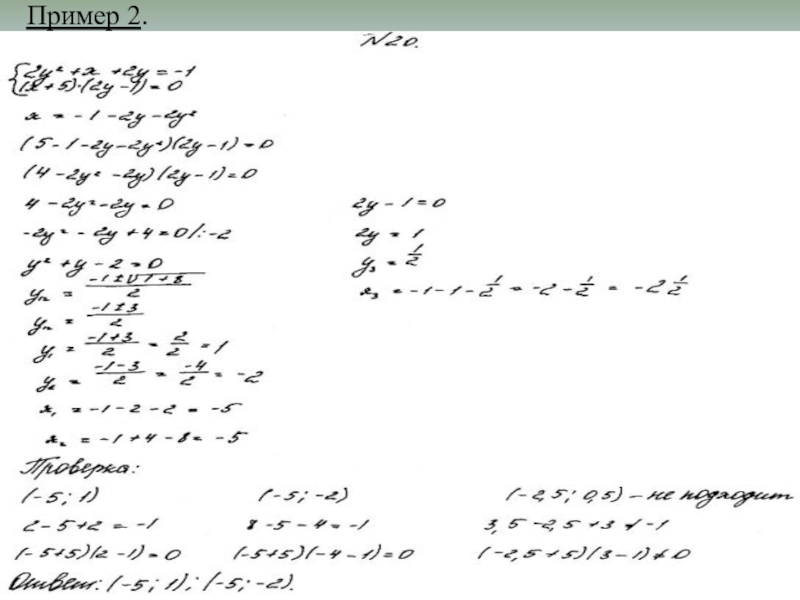 Пример 2.
№20.
{2y² + x + 2y = -1
{(x+5)·(2y-1) = 0
x = -1 - 2y - 2y²
(5-1-2y-2y²)(2y-1) = 0
(4-2y²-2y)(2y-1) = 0
4-2y²-2y = 0
-2y²-2y+4 = 0 /:-2
y²+y-2 = 0
y₁₂ = (-1±√1+8)/2
y₁₂ = (-1±3)/2
y₁ = (-1+3)/2 = 2/2 = 1
y₂ = (-1-3)/2 = -4/2 = -2
x₁ = -1-2-2 = -5
x₂ = -1+4-8 = -5
2y-1 = 0
2y = 1
y₃ = 1/2
x₃ = -1-1-1/2 = -2-1/2 = -2 1/2
Проверка:
(-5; 1) (-5; -2) (-2,5; 0,5) – не подходит
2-5+2 = -1 8-5-4 = -1 3,5-2,5+3 ≠ -1
(-5+5)(2-1) = 0 (-5+5)(-4-1) = 0 (-2,5+5)(3-1) ≠ 0
Ответ: (-5; 1); (-5; -2).